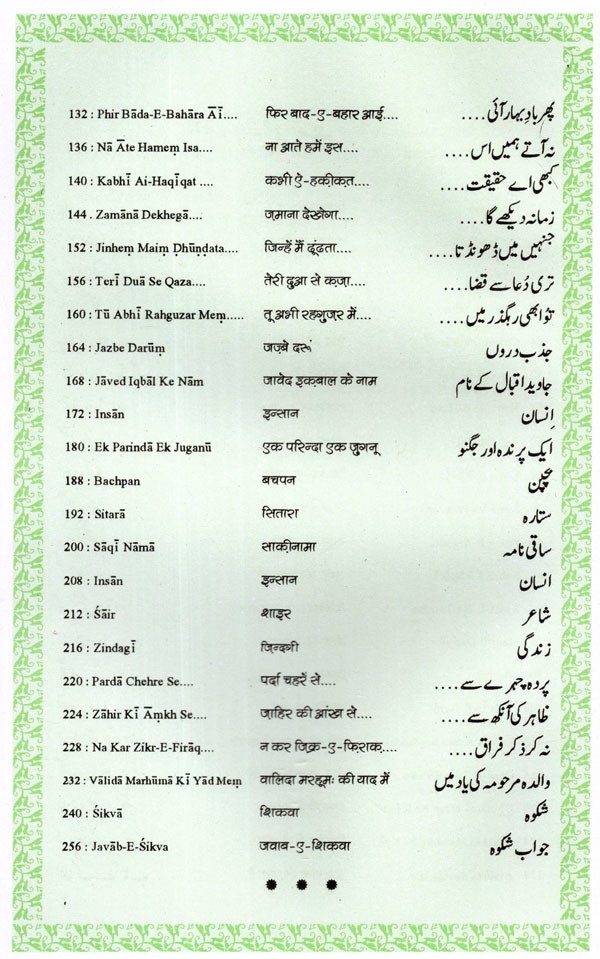 132 : Phir Bāda-E-Bahāra Āī.... फिर बाद-ए-बहार आई.... پھر بادِ بہار آئی....
136 : Nā Āte Hameṃ Isa.... ना आते हमें इस.... نہ آتے ہمیں اس....
140 : Kabhī Ai-Haqīqat .... कभी ऐ-हक़ीक़त.... کبھی اے حقیقت....
144 . Zamānā Dekhegā.... ज़माना देखेगा.... زمانہ دیکھے گا....
152 : Jinheṃ Maiṃ Ḍhūṇḍata.... जिन्हें मैं ढूंढता.... جنہیں میں ڈھونڈتا....
156 : Terī Duā Se Qaza.... तेरी दुआ से क़ज़ा.... تری دُعا سے قضا....
160 : Tū Abhī Rahguzar Meṃ..... तू अभी रहगुज़र में.... تُو ابھی رہگذر میں....
164 : Jazbe Darūṃ जज़्बे दरूं جذب دروں
168 : Jāved Iqbāl Ke Nām जावेद इक़बाल के नाम جاوید اقبال کے نام
172 : Insān इन्सान اِنسان
180 : Ek Parindā Ek Juganū एक परिन्दा एक जुगनू ایک پرندہ اور جگنو
188 : Bachpan बचपन بچپن
192 : Sitarā सितारा ستارہ
200 : Sāqī Nāmā साक़ीनामा ساقی نامہ
208 : Insān इन्सान انسان
212 : Śāir शाइर شاعر
216 : Zindagī ज़िन्दगी زندگی
220 : Pardā Chehre Se.... पर्दा चहरें से.... پردہ چہرے سے....
224 : Zāhir Kī Āṃkh Se.... ज़ाहिर की आंख से.... ظاہر کی آنکھ سے....
228 : Na Kar Zikr-E-Firāq.... न कर ज़िक्र-ए-फ़िराक़.... نہ کر ذکر فراق....
232 : Vālidā Marhūmā Kī Yād Meṃ वालिदा मरहूमः की याद में والدہ مرحومہ کی یاد میں
240 : Śikvā शिकवा شکوہ
256 : Javāb-E-Śikva जवाब-ए-शिकवा جواب شکوہ